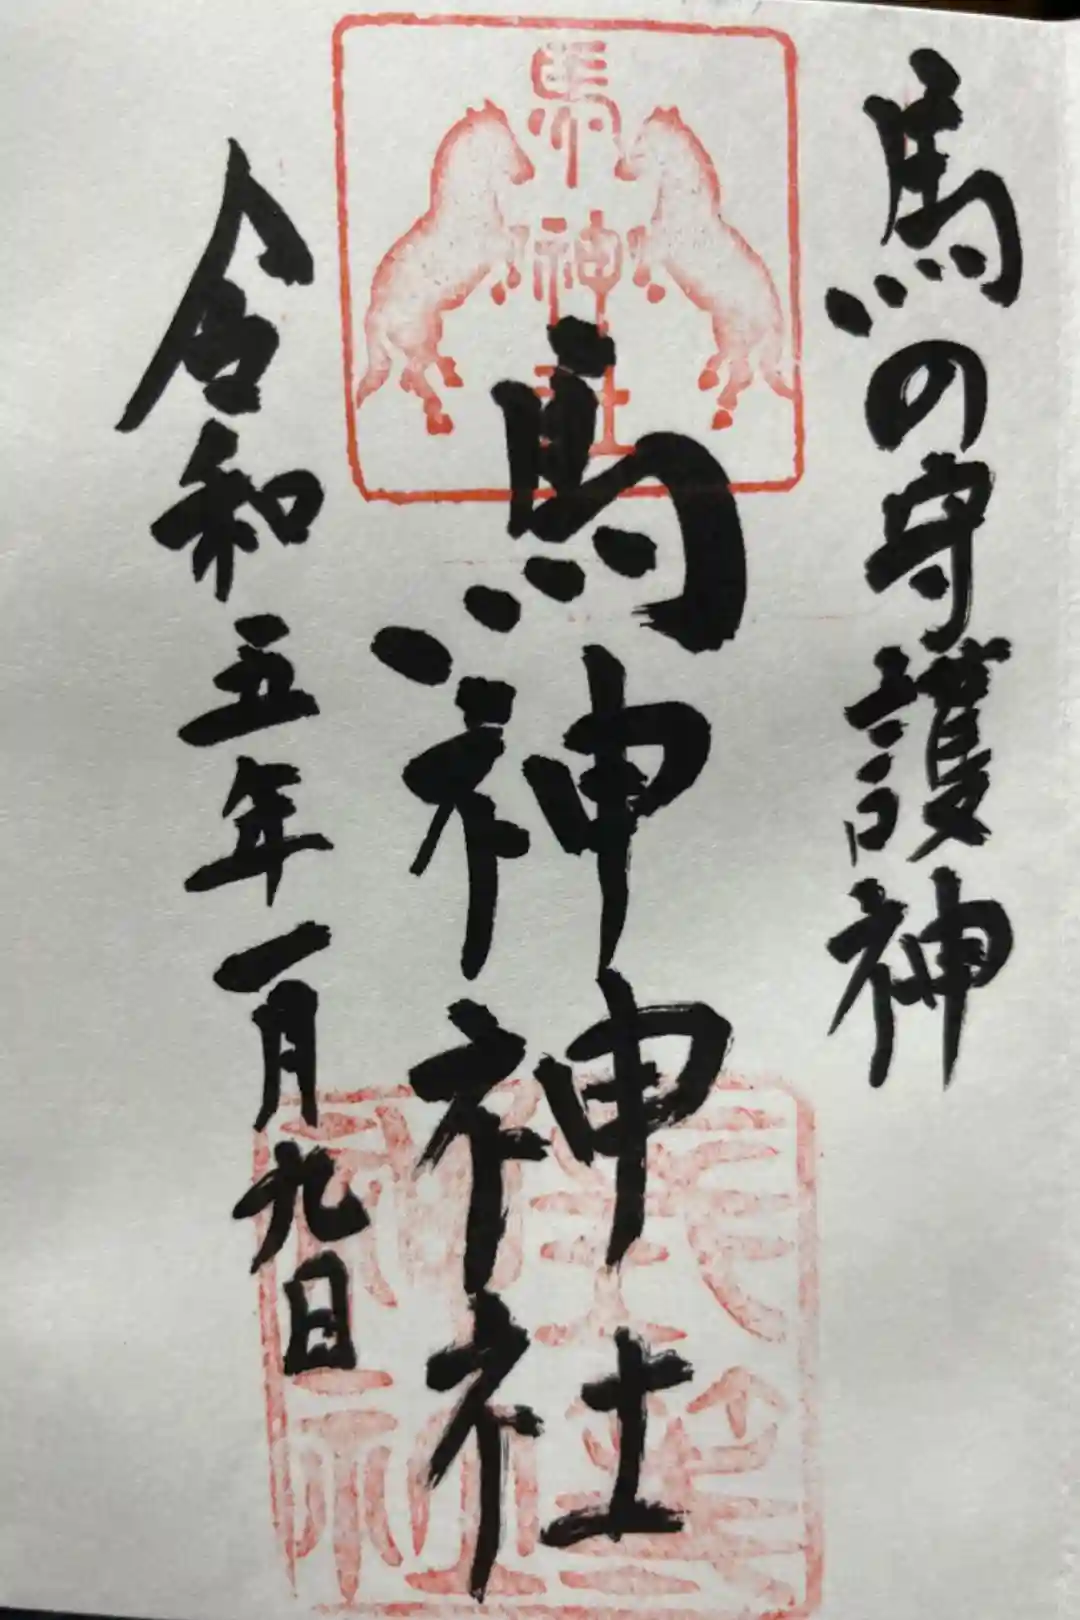 馬の守護神
馬神神社
令和五年一月九日
馬神社